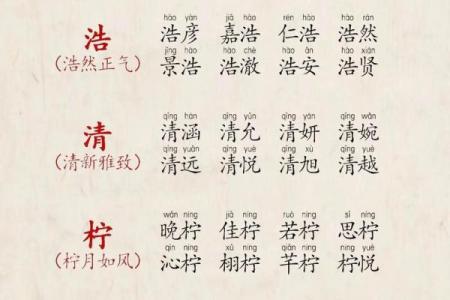 hào yàn jiā hào rén hào hào rán
浩 浩彦 嘉浩 仁浩 浩然
jǐng hào hào chè hào ān hào xián
(浩然正气) 景浩 浩澈 浩安 浩贤
qīng hán qīng yǔn qīng yán qīng wǎn
清 清涵 清允 清妍 清婉
qīng yuǎn qīng yuè qīng xù qīng yuè
(清新雅致) 清远 清悦 清旭 清越
wǎn níng jiā níng ruò níng sī níng
柠 晚柠 佳柠 若柠 思柠
qìn níng xǔ níng qiān níng níng yuè
(柠月如风) 沁柠 栩柠 芊柠 柠悦